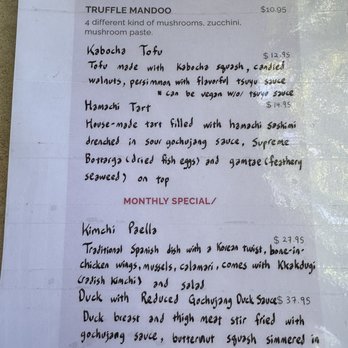 TRUFFLE MANDOO $10.95
4 different kind of mushrooms, zucchini,
mushroom paste.
Kabocha Tofu $12.95
Tofu made with kabocha squash, candied
walnuts, persimmon with flavorful tsuyu sauce
* can be vegan w/o tsuyu sauce
Hamachi Tart $14.95
House-made tart filled with hamachi sashimi
drenched in sour gochujang sauce, Supreme
Bottarga (dried fish eggs) and gamtae (feathery
seaweed) on top
MONTHLY SPECIAL/
Kimchi Paella $27.95
Traditional Spanish dish with a Korean twist, bone-in-
chicken wings, mussels, calamari, comes with Kkakdugi
(radish kimchi) and salad
Duck with Reduced Gochujang Duck Sauce $37.95
Duck breast and thigh meat stir fried with
gochujang sauce, butternut squash simmered in